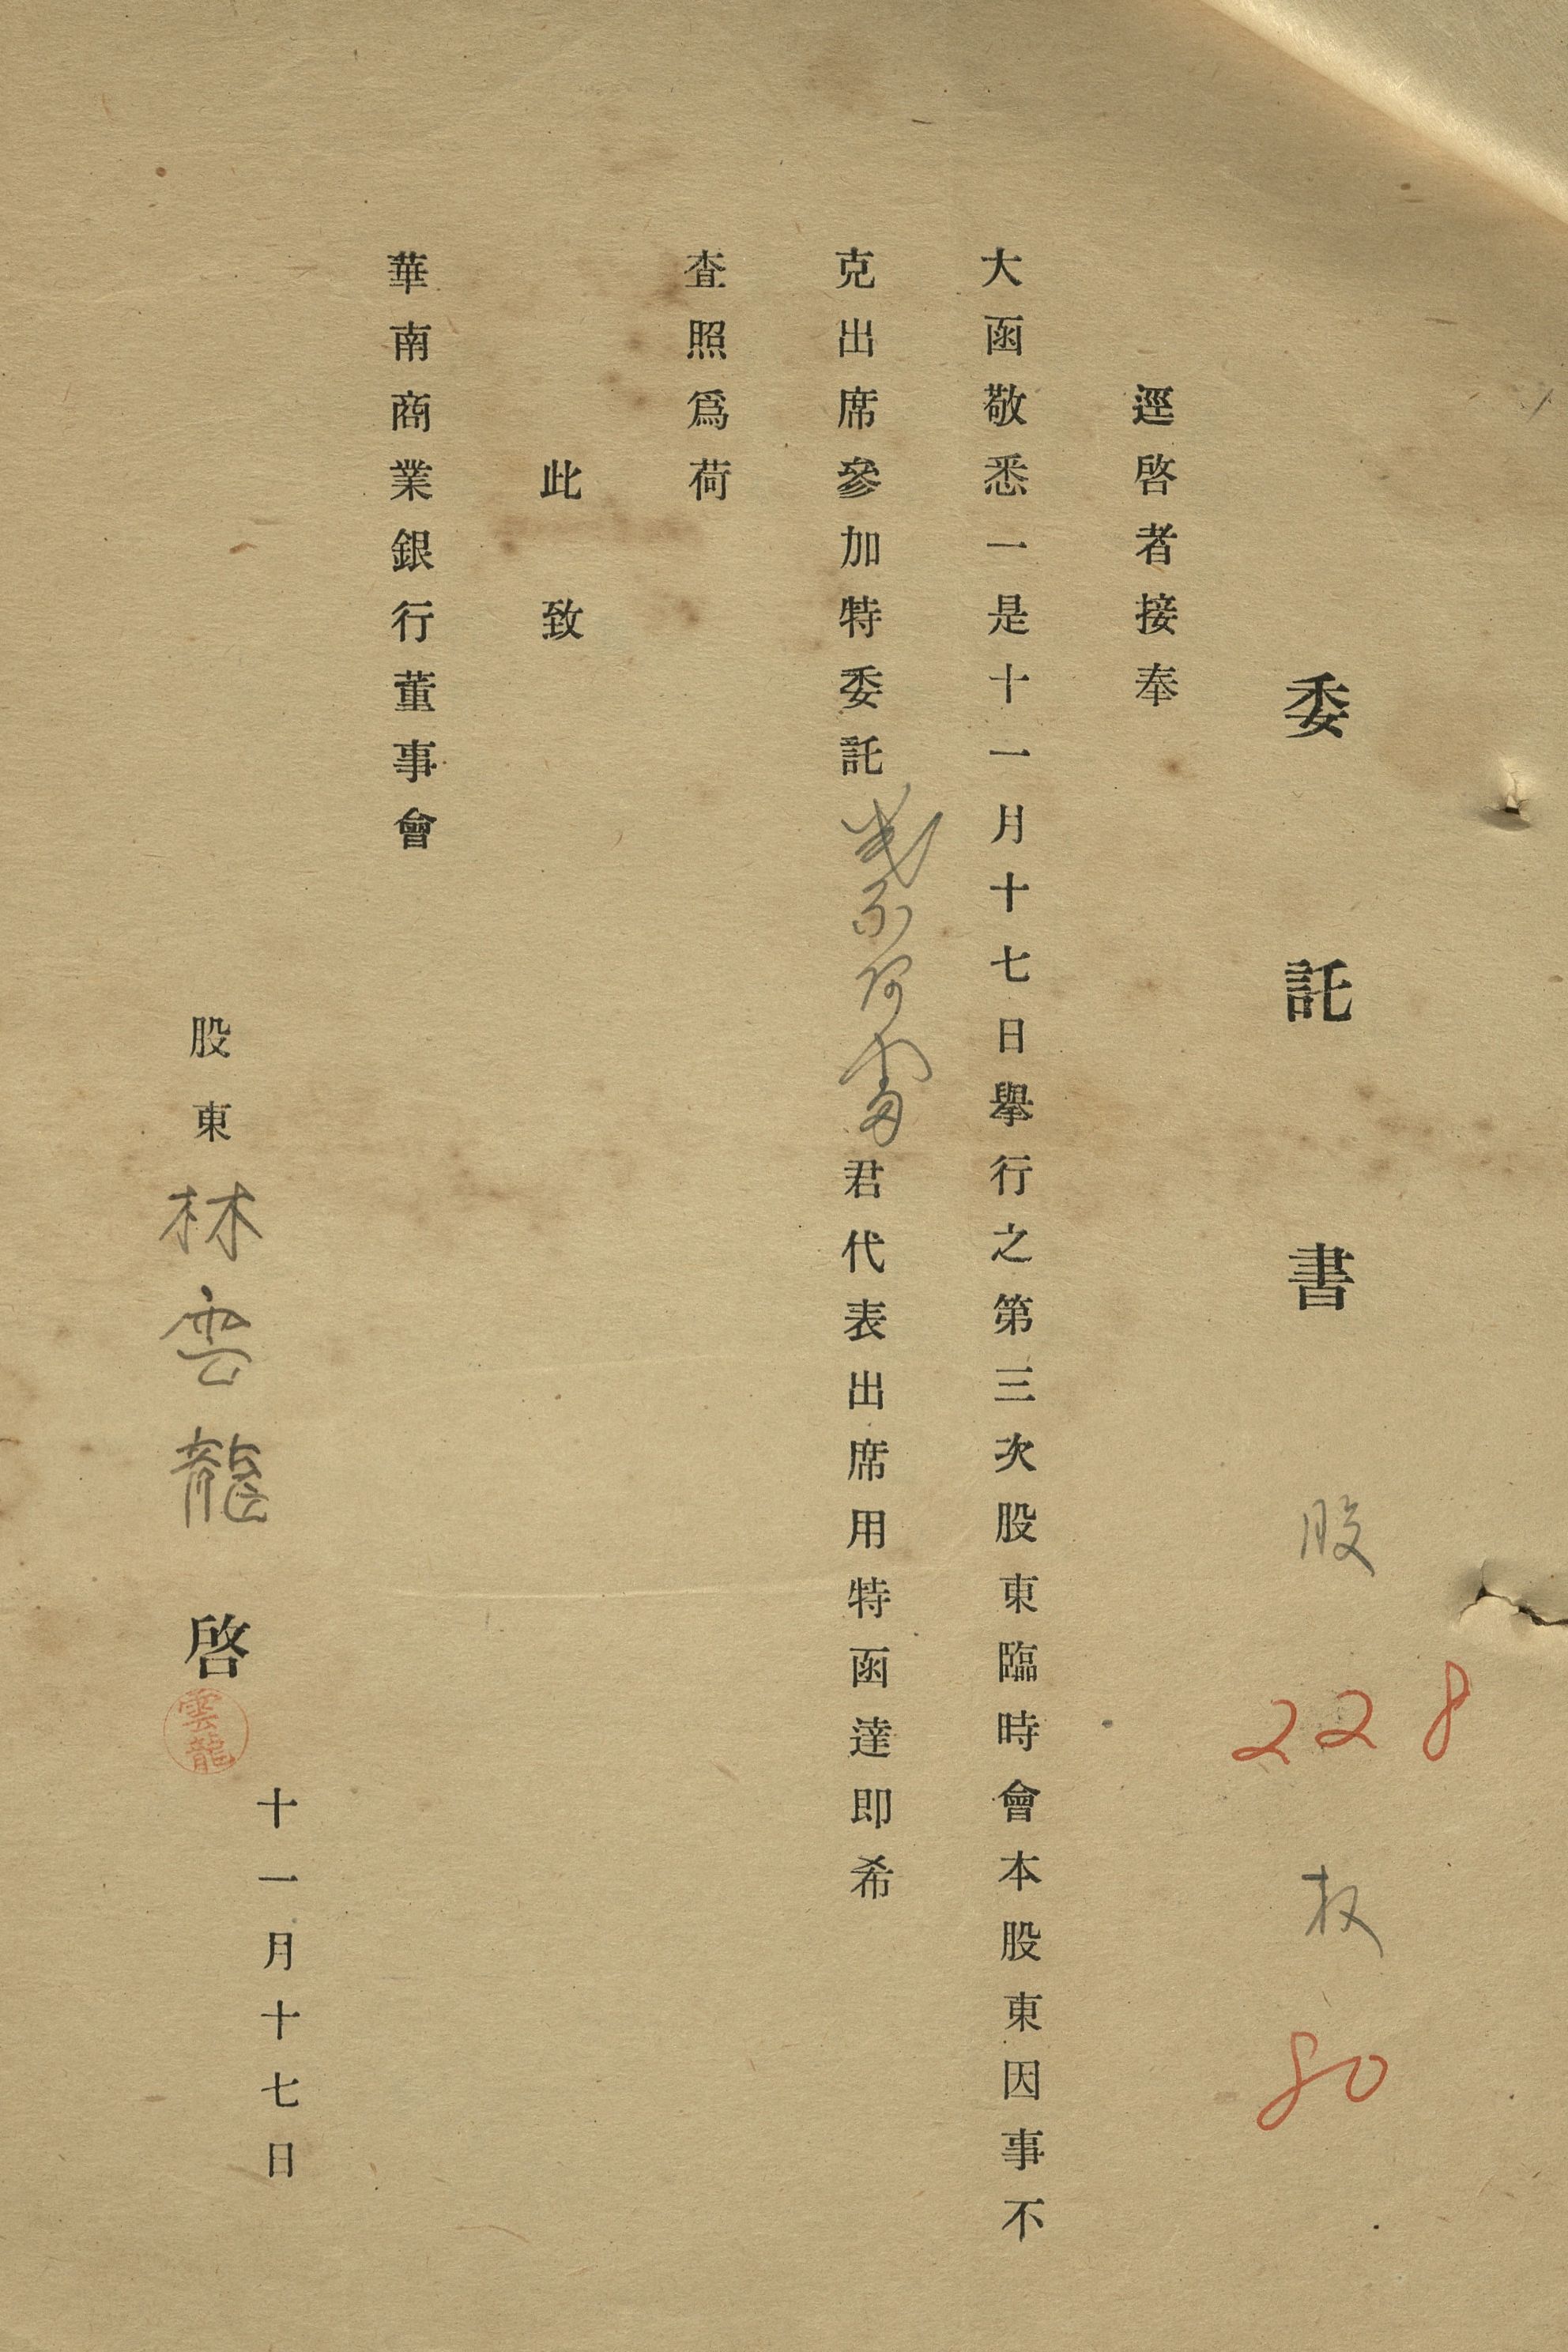 委託書 股 228 权 80
逕啓者接奉
大函敬悉一是十一月十七日舉行之第三次股東臨時會本股東因事不
克出席參加特委託 君代表出席用特函達即希
査照爲荷
此致
華南商業銀行董事會
十一月十七日
股東 林雲龍 啓
雲龍